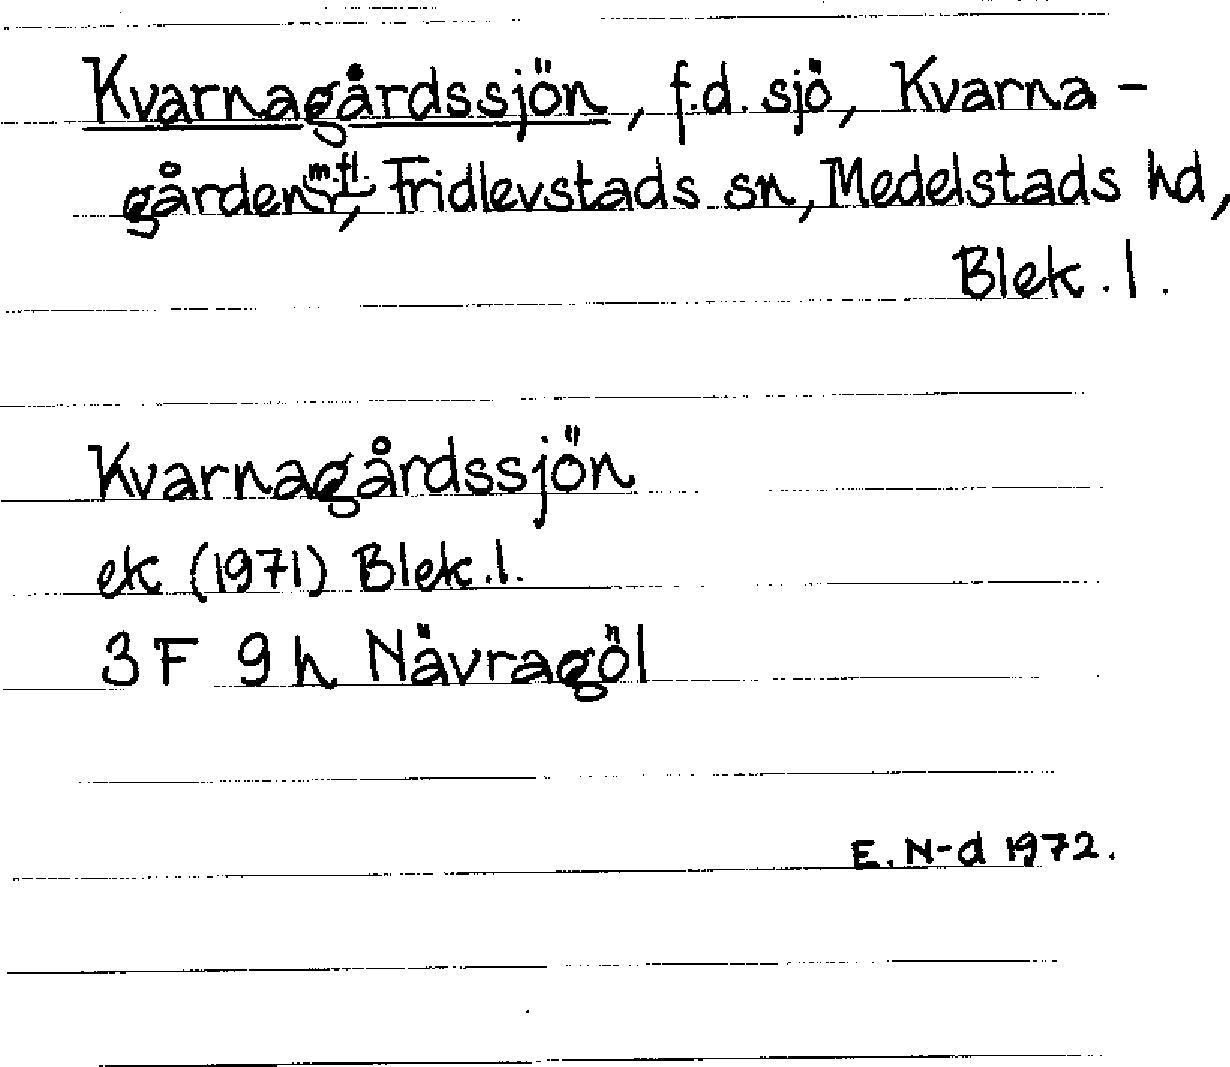 Kvarnagårdssjön, f.d. sjö, Kvarna-
gården m.fl., Fridlevstads sn, Medelstads hd,
Blek. l.
Kvarnagårdssjön
ek (1971) Blek. l.
3 F 9 h Nävragöl
E. N-d 1972.